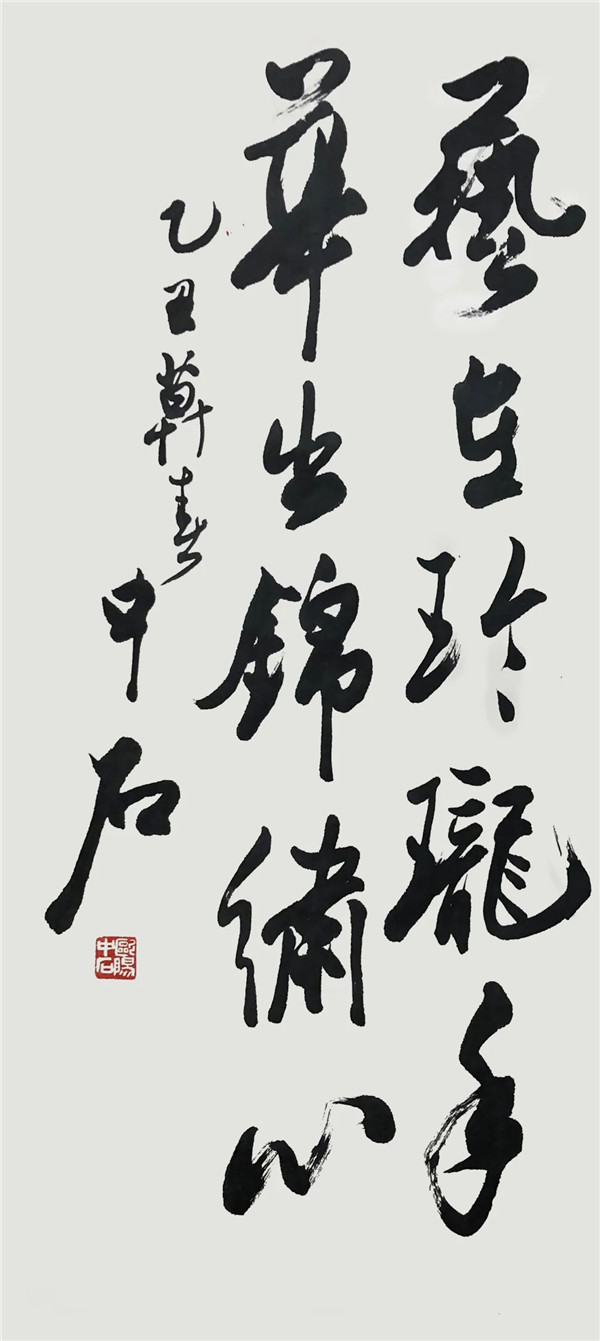 藝在玲瓏手
華出錦繡心
乙丑春
中石
歐陽中石